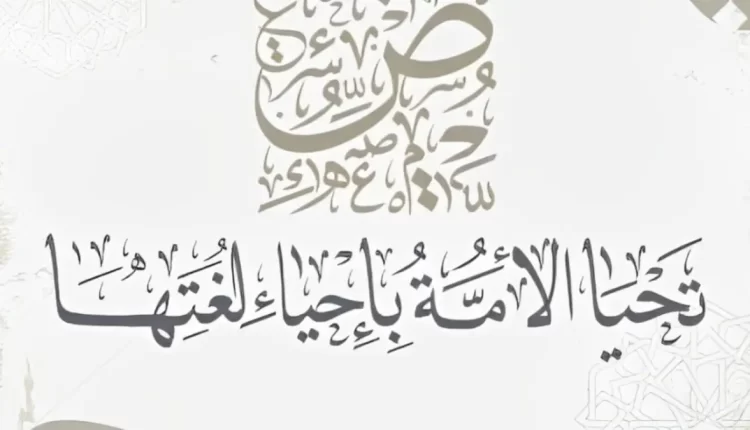 تَحْيَا الأمَّةُ بِإِحْياءِ لُغَتِهَا